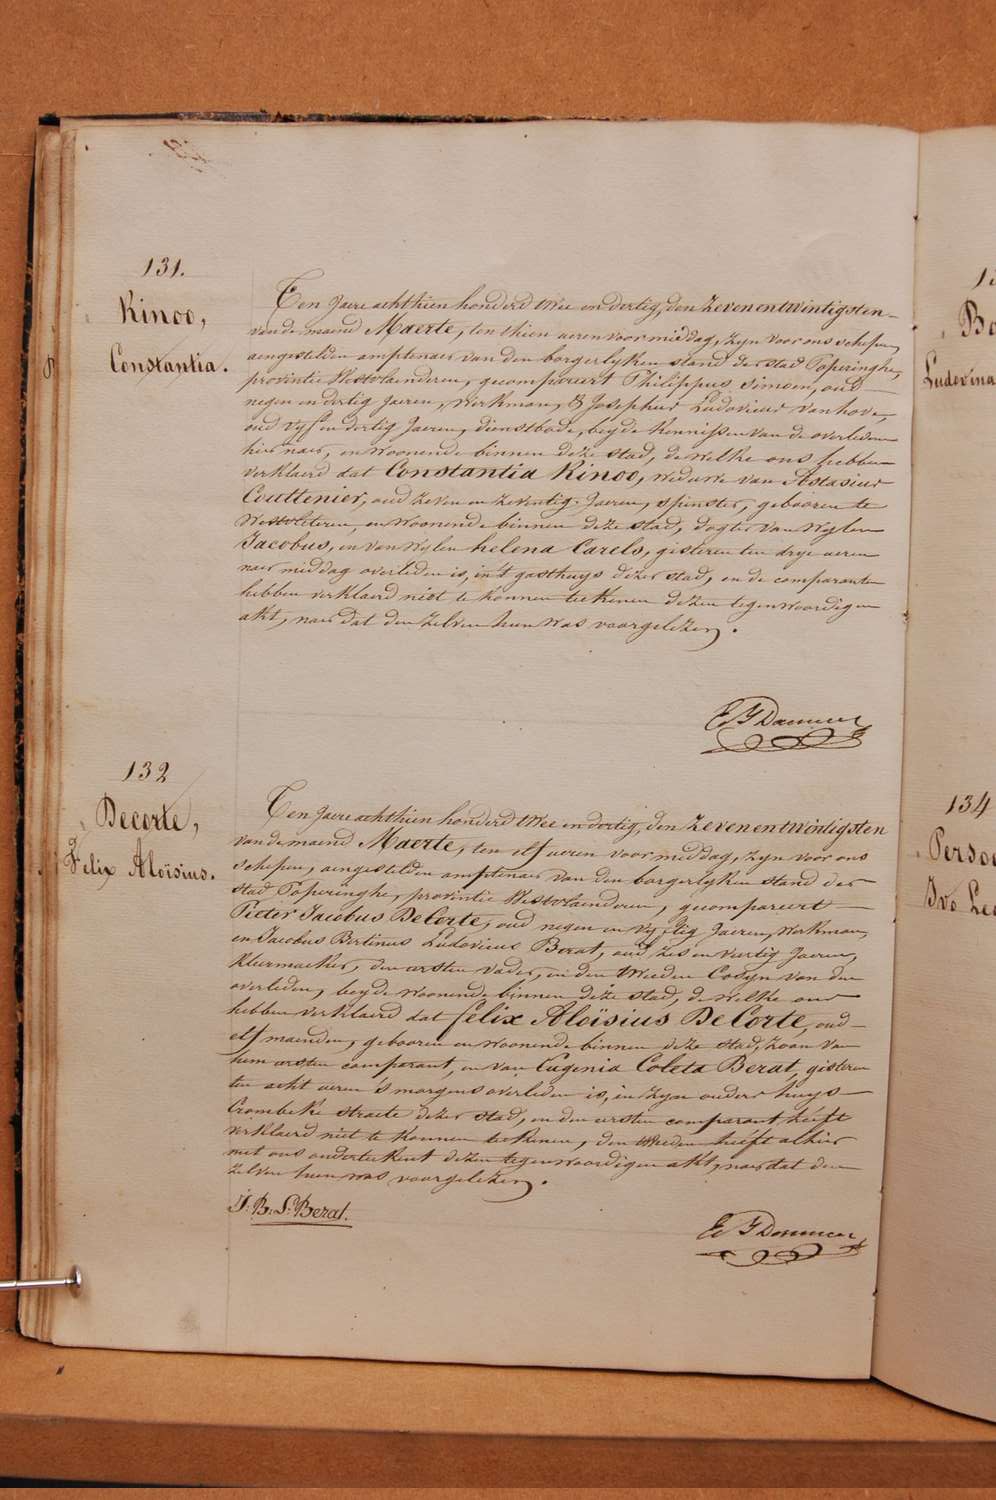 131.
Kinoo,
Constantia.
Ten Jaere achthien honderd twee en dertig, den zevenentwintigsten
van de maend Maerte, ten thien aeren voormiddag, zyn voor ons schepen,
aengestelden amptenaer van den borgerlyken stand der stad Poperinghe,
provintie Westvlaenderen, gecompareert Philippus Simoen, oud
negen en dertig Jaeren, werkman, & Josephus Ludovicus Vanhove,
oud vyf en dertig Jaeren, dienstbode, beyde kennissen van de overledene
hier naer, en woonende binnen deze stad, de welke ons hebben
verklaerd dat Constantia Kinoo, weduwe van Astasius
Couttenier, oud zeven en zeventig Jaeren, spinster, gebooren te
Westvleteren, en woonende binnen deze stad, dogter van wylen
Jacobus, en van wylen helena Carels, gisteren ten drye aeren
naer middag overleden is, in 't gasthuys dezer stad, en de comparanten
hebben verklaerd niet te konnen teekenen dezen tegenwoordigen
akt, naer dat den zelven hun was voorgelezen.
132
Decorte,
Felix Aloïsius.
Ten Jaere achthien honderd twee en dertig, den zevenentwintigsten
van de maend Maerte, ten elf aeren voormiddag, zyn voor ons
schepen, aengestelden amptenaer van den borgerlyken stand der
stad Poperinghe, provintie Westvlaenderen, gecompareert
Pieter Jacobus DeCorte, oud negen en vyftig Jaeren, werkman,
en Jacobus Bertinus Ludovicus Berat, oud zes en viertig Jaeren,
kleermaeker, den eersten vader, en den tweeden Cosyn van den
overleden, beyde woonende binnen deze stad, de welke ons
hebben verklaerd dat felix Aloïsius DeCorte, oud
elf maenden, gebooren en woonende binnen deze stad, zoon van
hem eersten comparant, en van Eugenia Coleta Berat, gisteren
ten acht aeren 's morgens overleden is, in zyne ouders huys
Crombeke straete dezer stad, en den eersten comparant heeft
verklaerd niet te konnen teekenen, den tweeden heeft alhier
met ons onderteekent dezen tegenwoordigen akt, naer dat den
zelven hun was voorgelezen.
J. B. L. Berat.
134